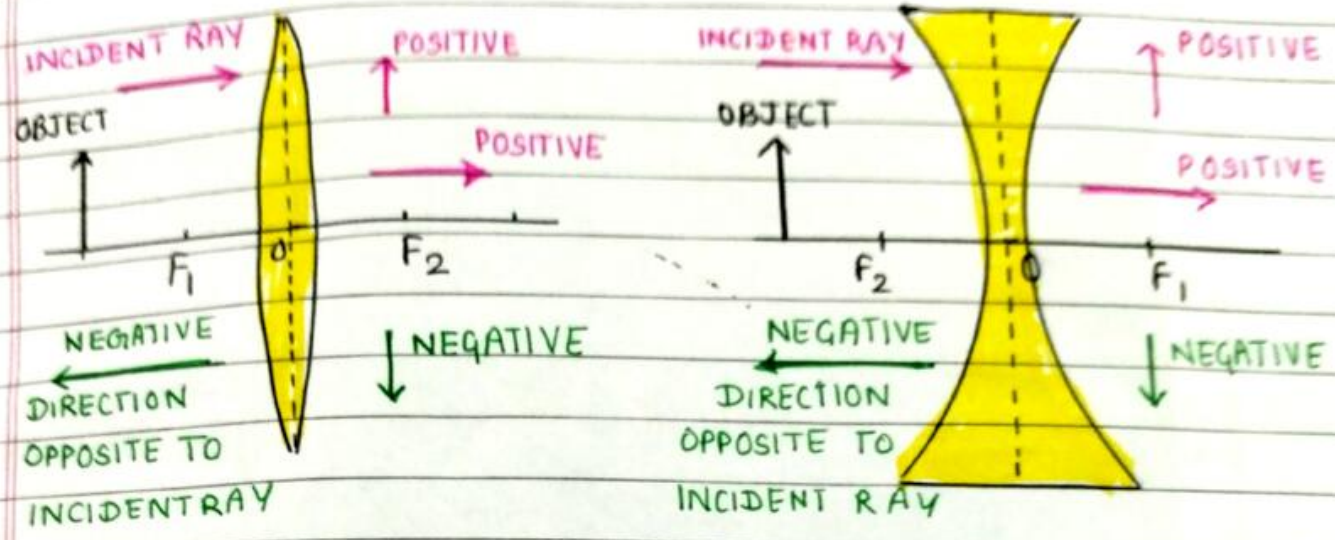 INCIDENT RAY
POSITIVE
OBJECT
POSITIVE
F1
O
F2
NEGATIVE
NEGATIVE
DIRECTION
OPPOSITE TO
INCIDENT RAY
INCIDENT RAY
POSITIVE
OBJECT
POSITIVE
F2
O
F1
NEGATIVE
NEGATIVE
DIRECTION
OPPOSITE TO
INCIDENT RAY